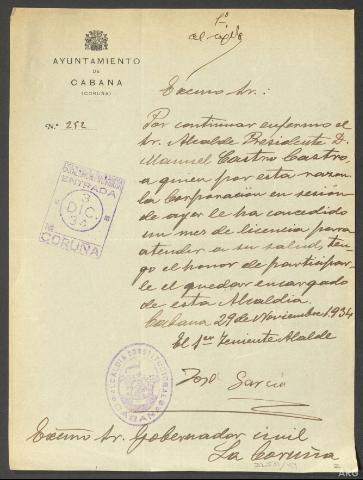 1º
AYUNTAMIENTO
DE
CABANA
(CORUÑA)
Excmo Sr.:
N.º 252
Por continuar enfermo el
Sr. Alcalde Presidente D.
Manuel Castro Castro,
a quien por esta razon
la Corporación en sesión
de ayer le ha concedido
un mes de licencia para
atender a su salud, ten-
go el honor de participar-
le el quedar encargado
de esta Alcaldía.
Cabana 29 de Noviembre 1934
El 1er Teniente Alcalde
José García
ENTRADA
3
DIC.
34
CORUÑA
ALCALDIA CONSTITUCIONAL
CABANA
Excmo Sr. Gobernador civil
La Coruña
ARG